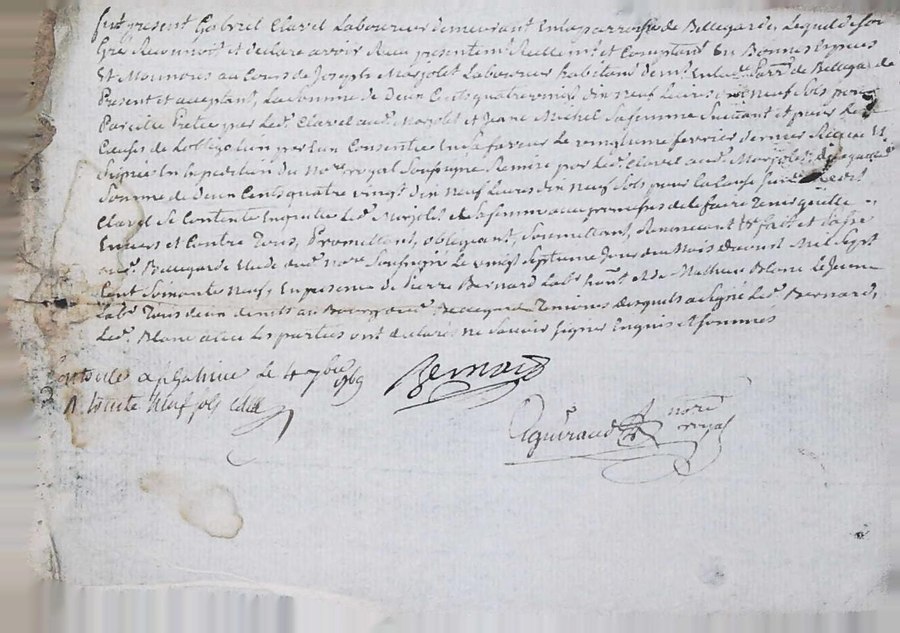 fut present Gabriel Clavel Laboureur demeurant En la parroisse de Bellegarde, Lequel de son
Gré Reconnoit et declare avoir Reçu presentemt Reellemt et Comptant En Bonnes Especes
Et Monnoies au Cours de Joseph Marjolet Laboureur habitant de
Present et acceptant, La somme de Deux Cents quatre vingt dix neuf Livres dix neuf sols pour
Pareille Pretée par Led. Clavel aud. Marjolet et Jeane Michel Sa femme Suivant et pour Les
Causes de Lobligation par Eux Consentie En Sa faveur Le vingt une fevrier dernier Recue Et
Signée En Lexpedition du nore royal Soussigné Remise par Led. Clavel aud. Marjolet de laquelle
Somme de Deux Cents quatre vingt dix Neuf Livres dix Neuf Sols pour La Cause
Clavel Se Contente En quitte Led. Marjolet et Sa femme avec promesse de Le faire Tenir quitte
Envers et Contre Tous, Promettant, obligeant, Soumettant, Renoncant & fait et Passé
aud. Bellegarde Etude dud. nore Soussigné Le vingt Septieme Jour du Mois daoust Mil Sept
Cent Soixante Neuf, En presence de Pierre Bernard Labr hant et de Mathieu Blanc Le Jeune
Labr Tous deux demts au Bourg dud. Bellegarde Temoins desquels a Signé Led. Bernard,
Led. Blanc avec Les parties ont declarés ne Savoir Signer Enquis et Sommés
Le 4 7bre 1769
R. trente Neuf sols
Bernard
Eguiraud nore
royal